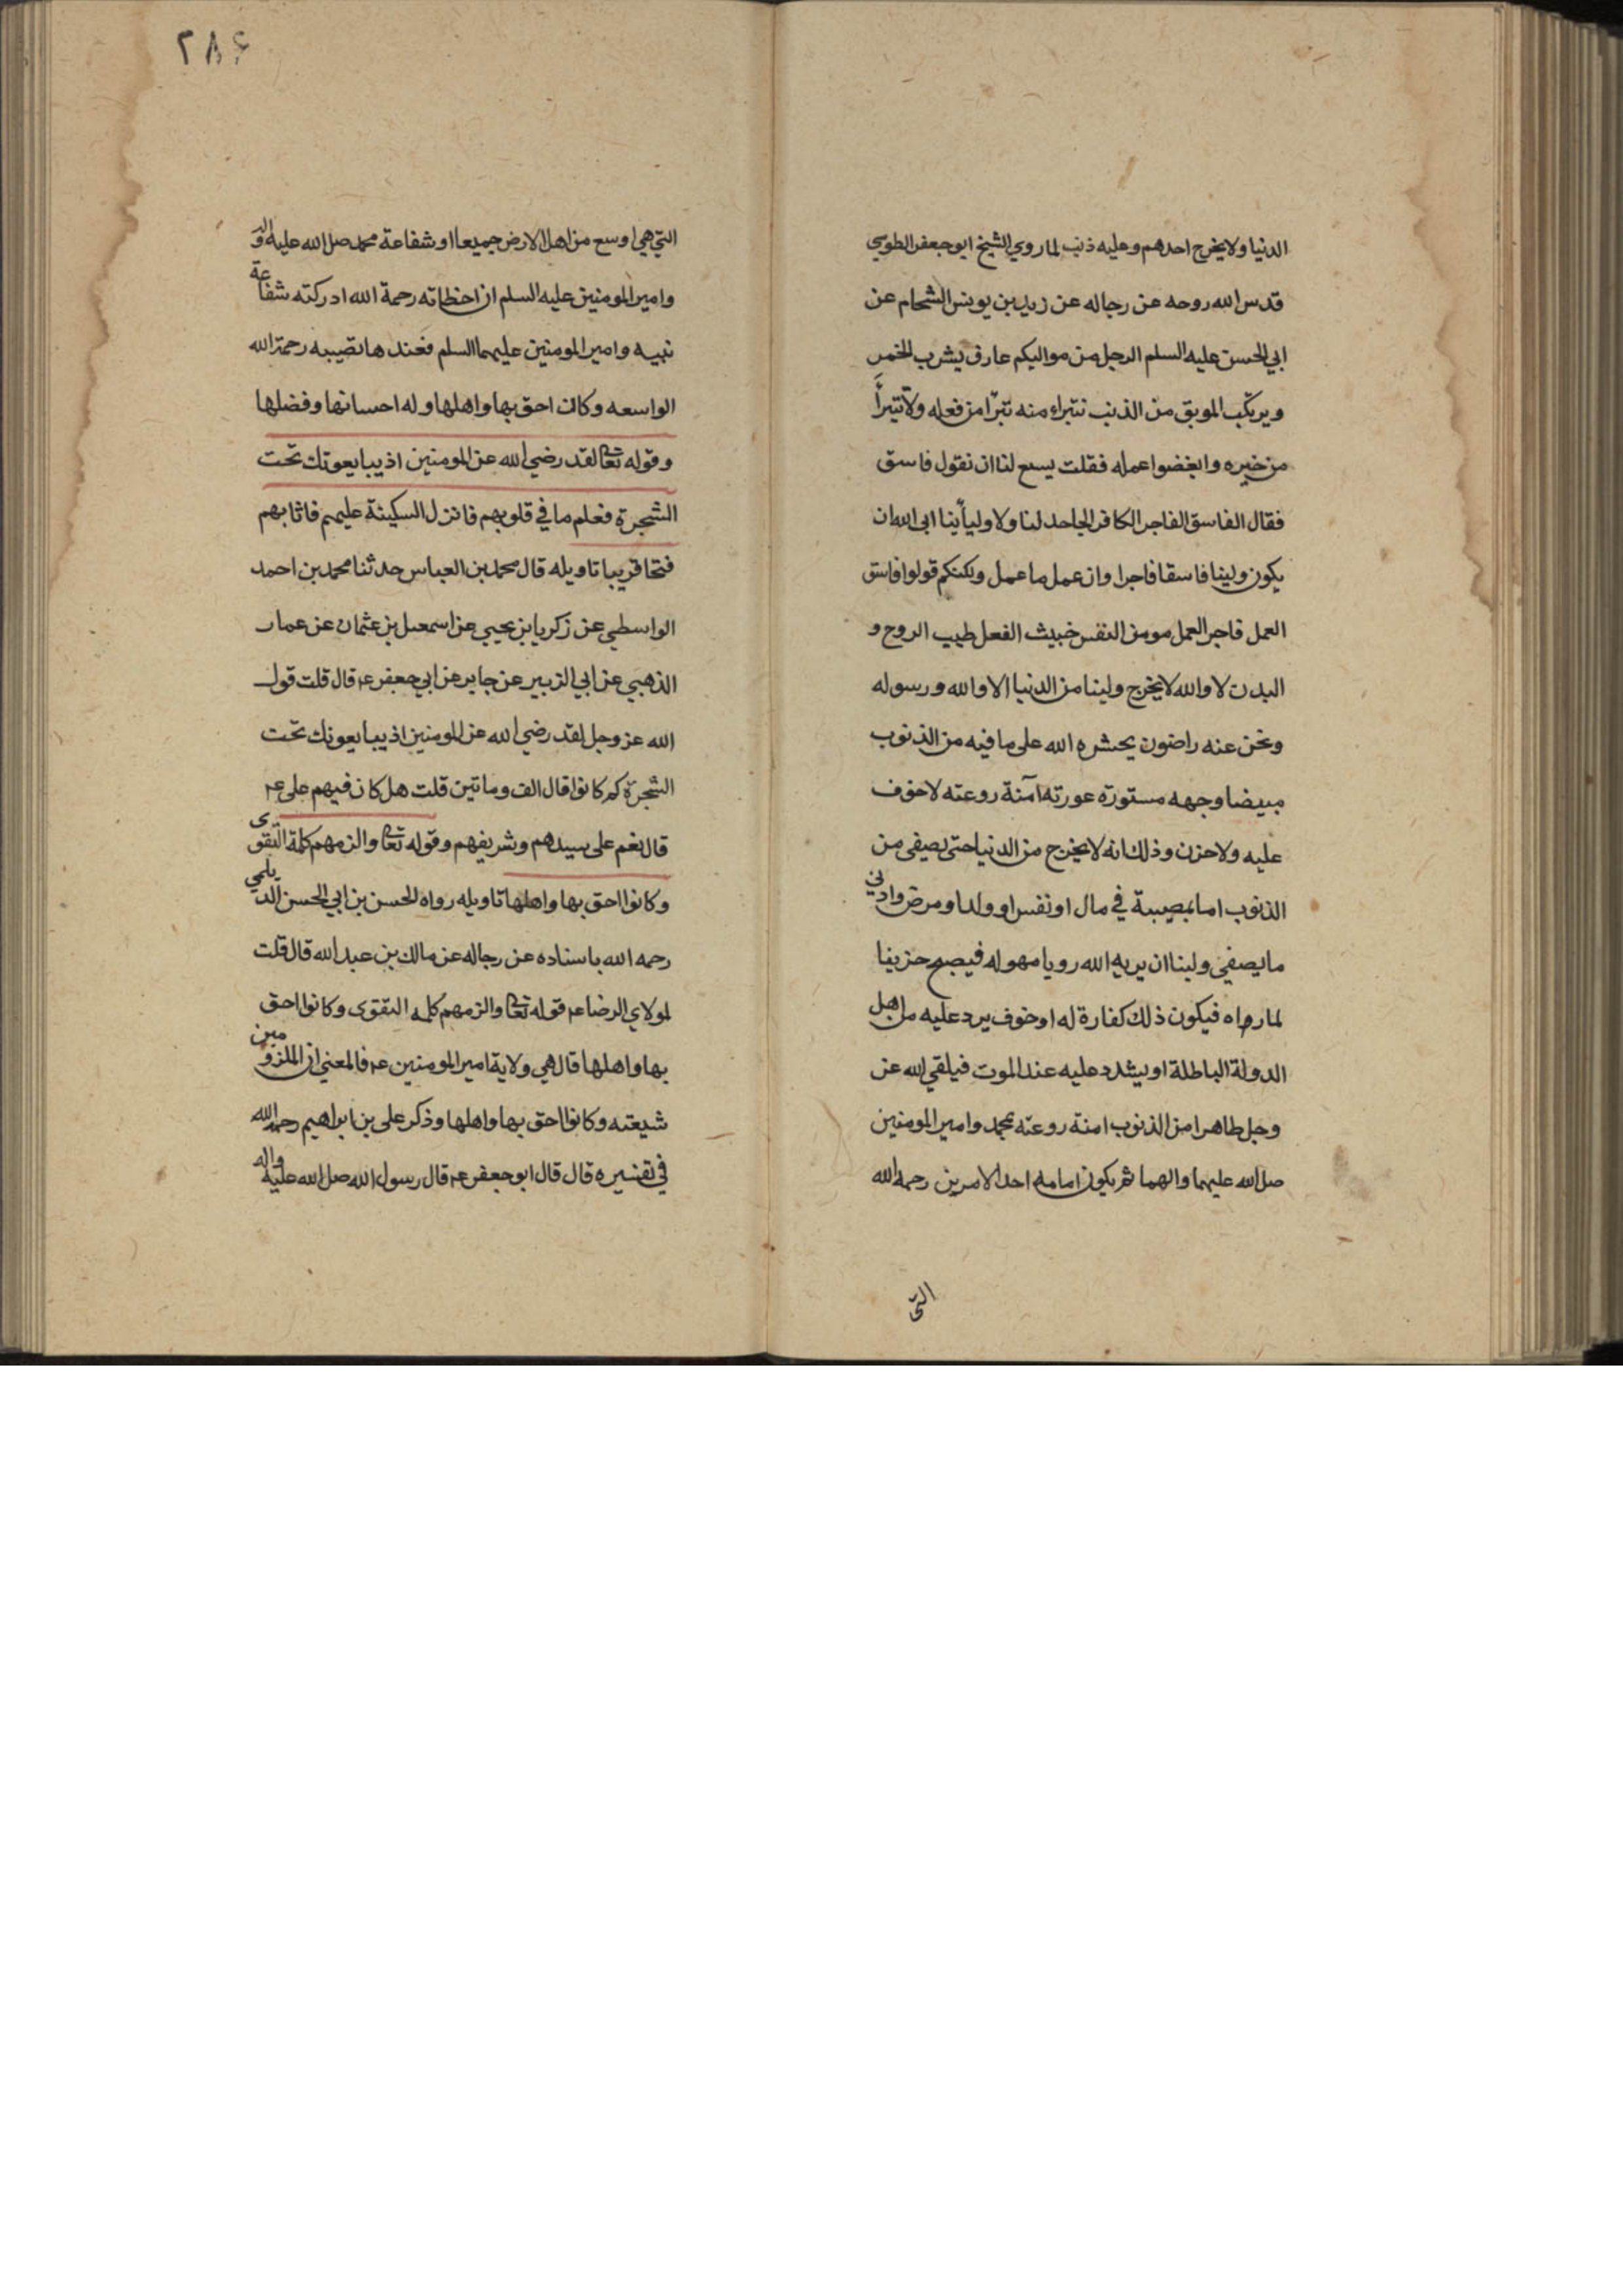 الدنيا ولا يخرج احدهم وعليه ذنب لما روي الشيخ ابو جعفر الطوسي
قدس الله روحه عن رجاله عن زيد بن يونس الشحام عن
ابي الحسن عليه السلم الرجل من مواليكم عارف يشرب الخمر
ويرتكب الموبق من الذنب نتبراء منه تبرّا من فعله ولا تتبرأ
من خيره وابغضوا عمله فقلت يسع لنا ان نقول فاسق
فقال الفاسق الفاجر الكافر الجاحد لنا ولا وليأينا ابي الله ان
يكون ولينا فاسقا فاجرا وان عمل ما عمل ولكنكم قولوا فاسق
العمل فاجر العمل مومن النفس خبيث الفعل طيب الروح و
البدن لا والله لا يخرج ولينا من الدنيا الا والله ورسوله
ونحن عنه راضون يحشره الله على ما فيه من الذنوب
مبيضا وجهه مستورة عورته آمنة روعته لا خوف
عليه ولا حزن وذلك انه لا يخرج من الدنيا حتى يصفى من
الذنوب اما بمصيبة في مال او نفس او ولد او مرض وادني
ما يصفي ولينا ان يريه الله رويا مهوله فيصبح حزينا
لما رواه فيكون ذلك كفارة له او خوف يرد عليه من اهل
الدولة الباطلة او يشدد عليه عند الموت فيلقي الله عز
وجل طاهرا من الذنوب امنة روعته بمحمد وامير المومنين
صل الله عليهما والهما ثم يكون امامه احد الامرين رحمه الله
التى
٢٨۶
التي هي اوسع من اهل الارض جميعا او شفاعة محمد صل الله عليه واله
وامير المومنين عليه السلم ان اخطاته رحمة الله ادركته شفاعة
نبيه وامير المومنين عليهما السلم فعندها تصيبه رحمة الله
الواسعه وكان احق بها واهلها وله احسانها وفضلها
وقوله تعا لقد رضي الله عن المومنين اذ يبايعونك تحت
الشجرة فعلم ما في قلوبهم فانزل السكينة عليهم فاثابهم
فتحا قريبا تاويله قال محمد بن العباس حدثنا محمد بن احمد
الواسطي عن زكريا بن يحيي عن اسمعيل بن عثمان عن عمار
الذهبي عن ابي الزبير عن جابر عن ابي جعفر عم قال قلت قول
الله عز وجل لقد رضي الله عن المومنين اذ يبايعونك تحت
الشجرة كم كانوا قال الف وماتين قلت هل كان فيهم علي عم
قال نعم علي سيدهم وشريفهم وقوله تعا والزمهم كلمة التقوى
وكانوا احق بها واهلها تاويله رواه الحسن بن ابي الحسن الديلمي
رحمه الله باسناده عن رجاله عن مالك بن عبد الله قال قلت
لمولاي الرضا عم قوله تعا والزمهم كلمه التقوى وكانوا احق
بها واهلها قال هي ولاية امير المومنين عم فالمعني ان الملزومين
شيعته وكانوا احق بها واهلها وذكر علي بن ابراهيم رحمه الله
في تفسيره قال قال ابو جعفر عم قال رسول الله صل الله عليه واله